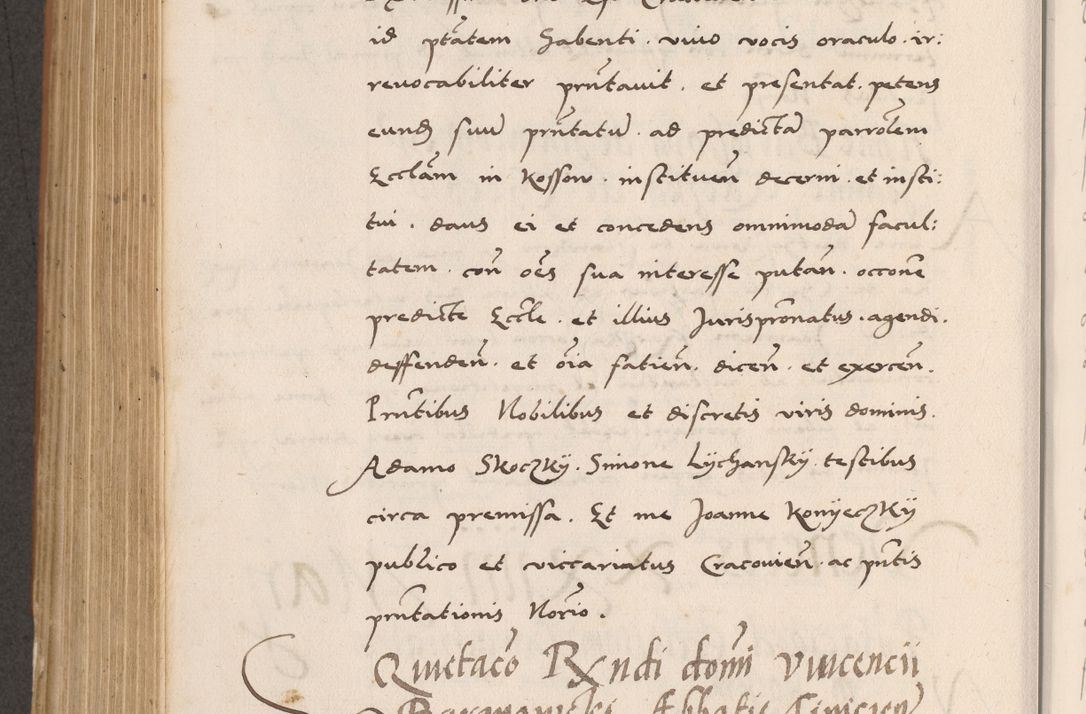 id ptatem habenti. vivo vocis oraculo. ir:
revocabiliter prntavit. et presentat. petens
eund suu prntatu. ad predicta parrolem
Eccliam in Kossow. instituen decerni. et insti:
tui. dans ei et concedens omnimoda facul:
tatem. con oes sua interesse putan. occone
predicte Eccle. et illius Jurispronatus. agendi.
deffenden. et oia fatien. dicen. et exercen.
Prntibus Nobilibus et discretis viris dominis.
Adamo Skoczky. Simone Lychansky. testibus
circa premissa. Et me Joanne Konyeczky
publico et viccariatus Cracovien. ac pntis
prntationis Norio.
Quietaco Rndi domi Vincencii
Abbatis